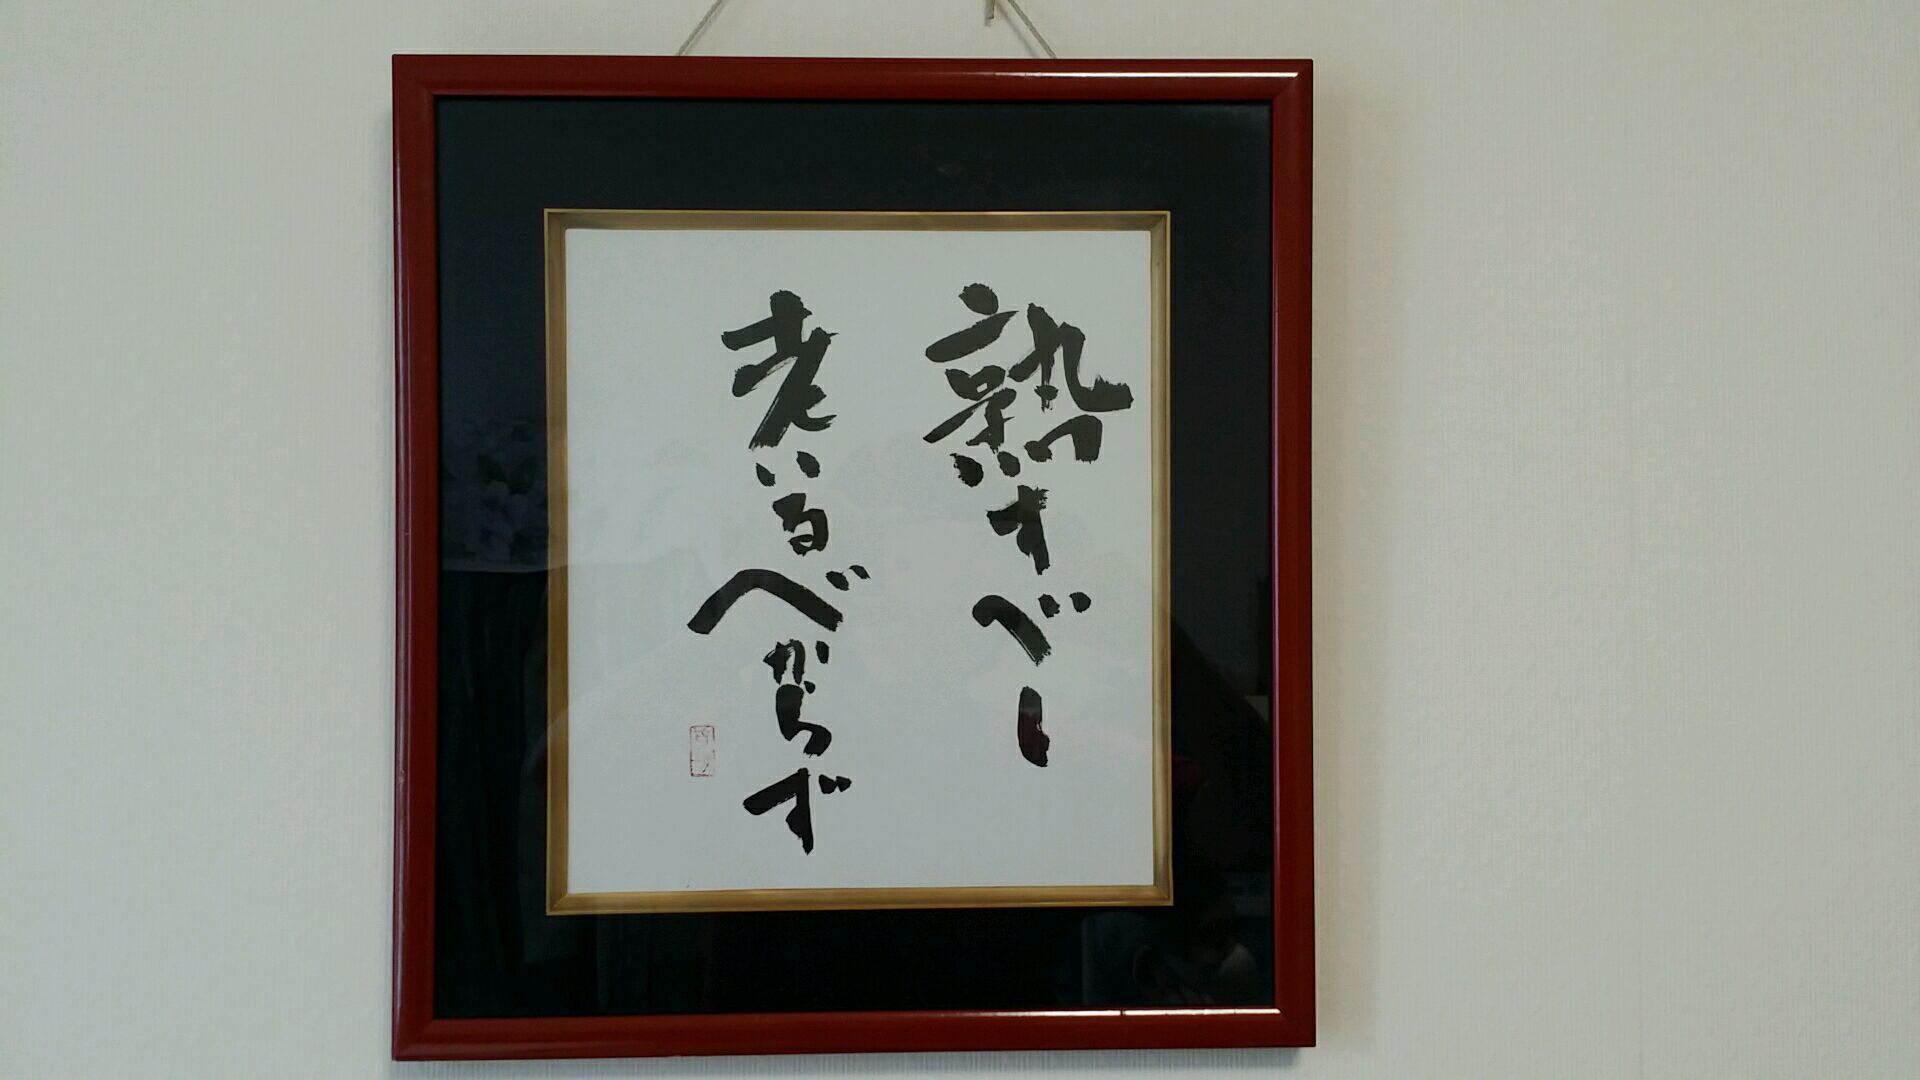 熟すべし
老いるべからず